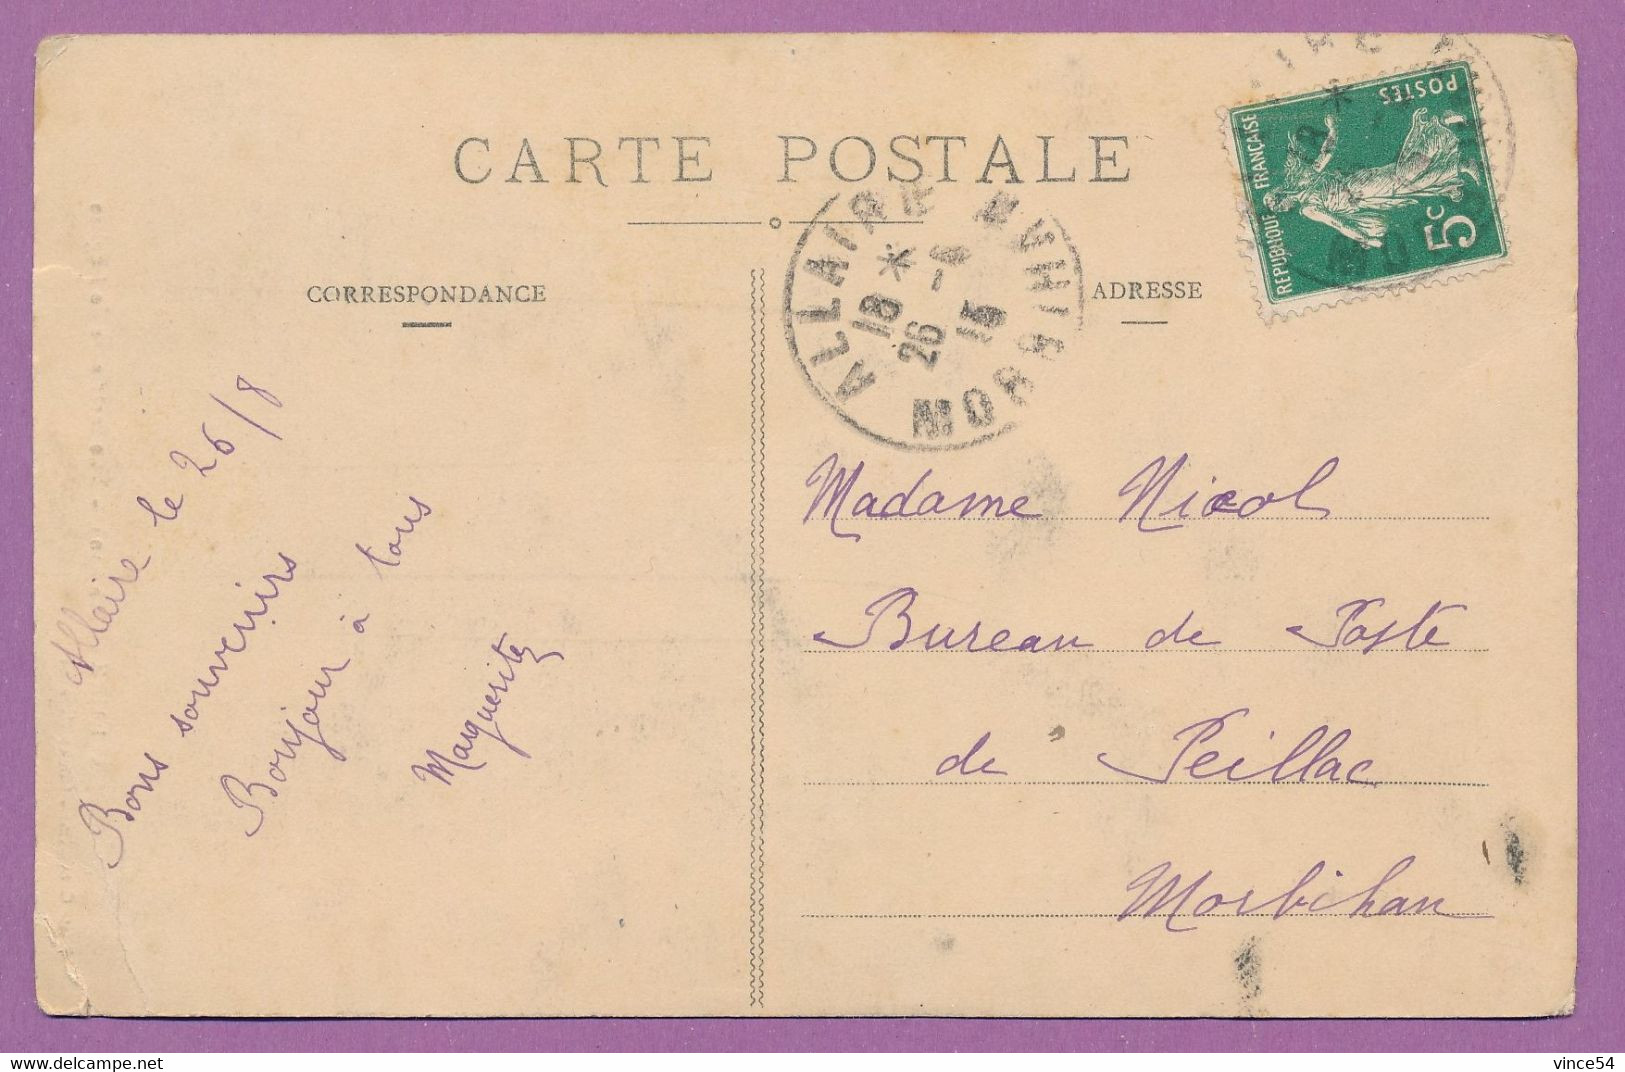 CARTE POSTALE
CORRESPONDANCE
ADRESSE
ALLAIRE MORBIHAN
18 *
26 - 8
15
REPUBLIQUE FRANÇAISE
POSTES
5c
Allaire le 26/8
Bons souvenirs
Bonjour à tous
Marguerite
Madame Nicol
Bureau de Poste
de Peillac
Morbihan
delcampe.net
vince54